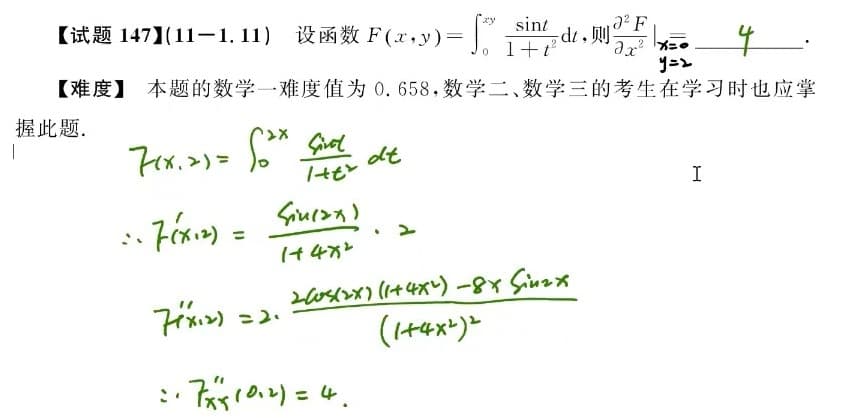 【试题 147】(11-1.11) 设函数 F(x,y)=∫₀^{xy} sint/(1+t²) dt,则 ∂²F/∂x² |_{x=0, y=2} = 4 .
【难度】 本题的数学一难度值为 0.658,数学二、数学三的考生在学习时也应掌
握此题.
F(x,2) = ∫₀^{2x} sint/(1+t²) dt
∴ F'(x,2) = sin(2x)/(1+4x²) · 2
F''(x,2) = 2· (2cos(2x)(1+4x²) - 8x sin2x)/(1+4x²)²
∴ F''ₓₓ(0,2) = 4.